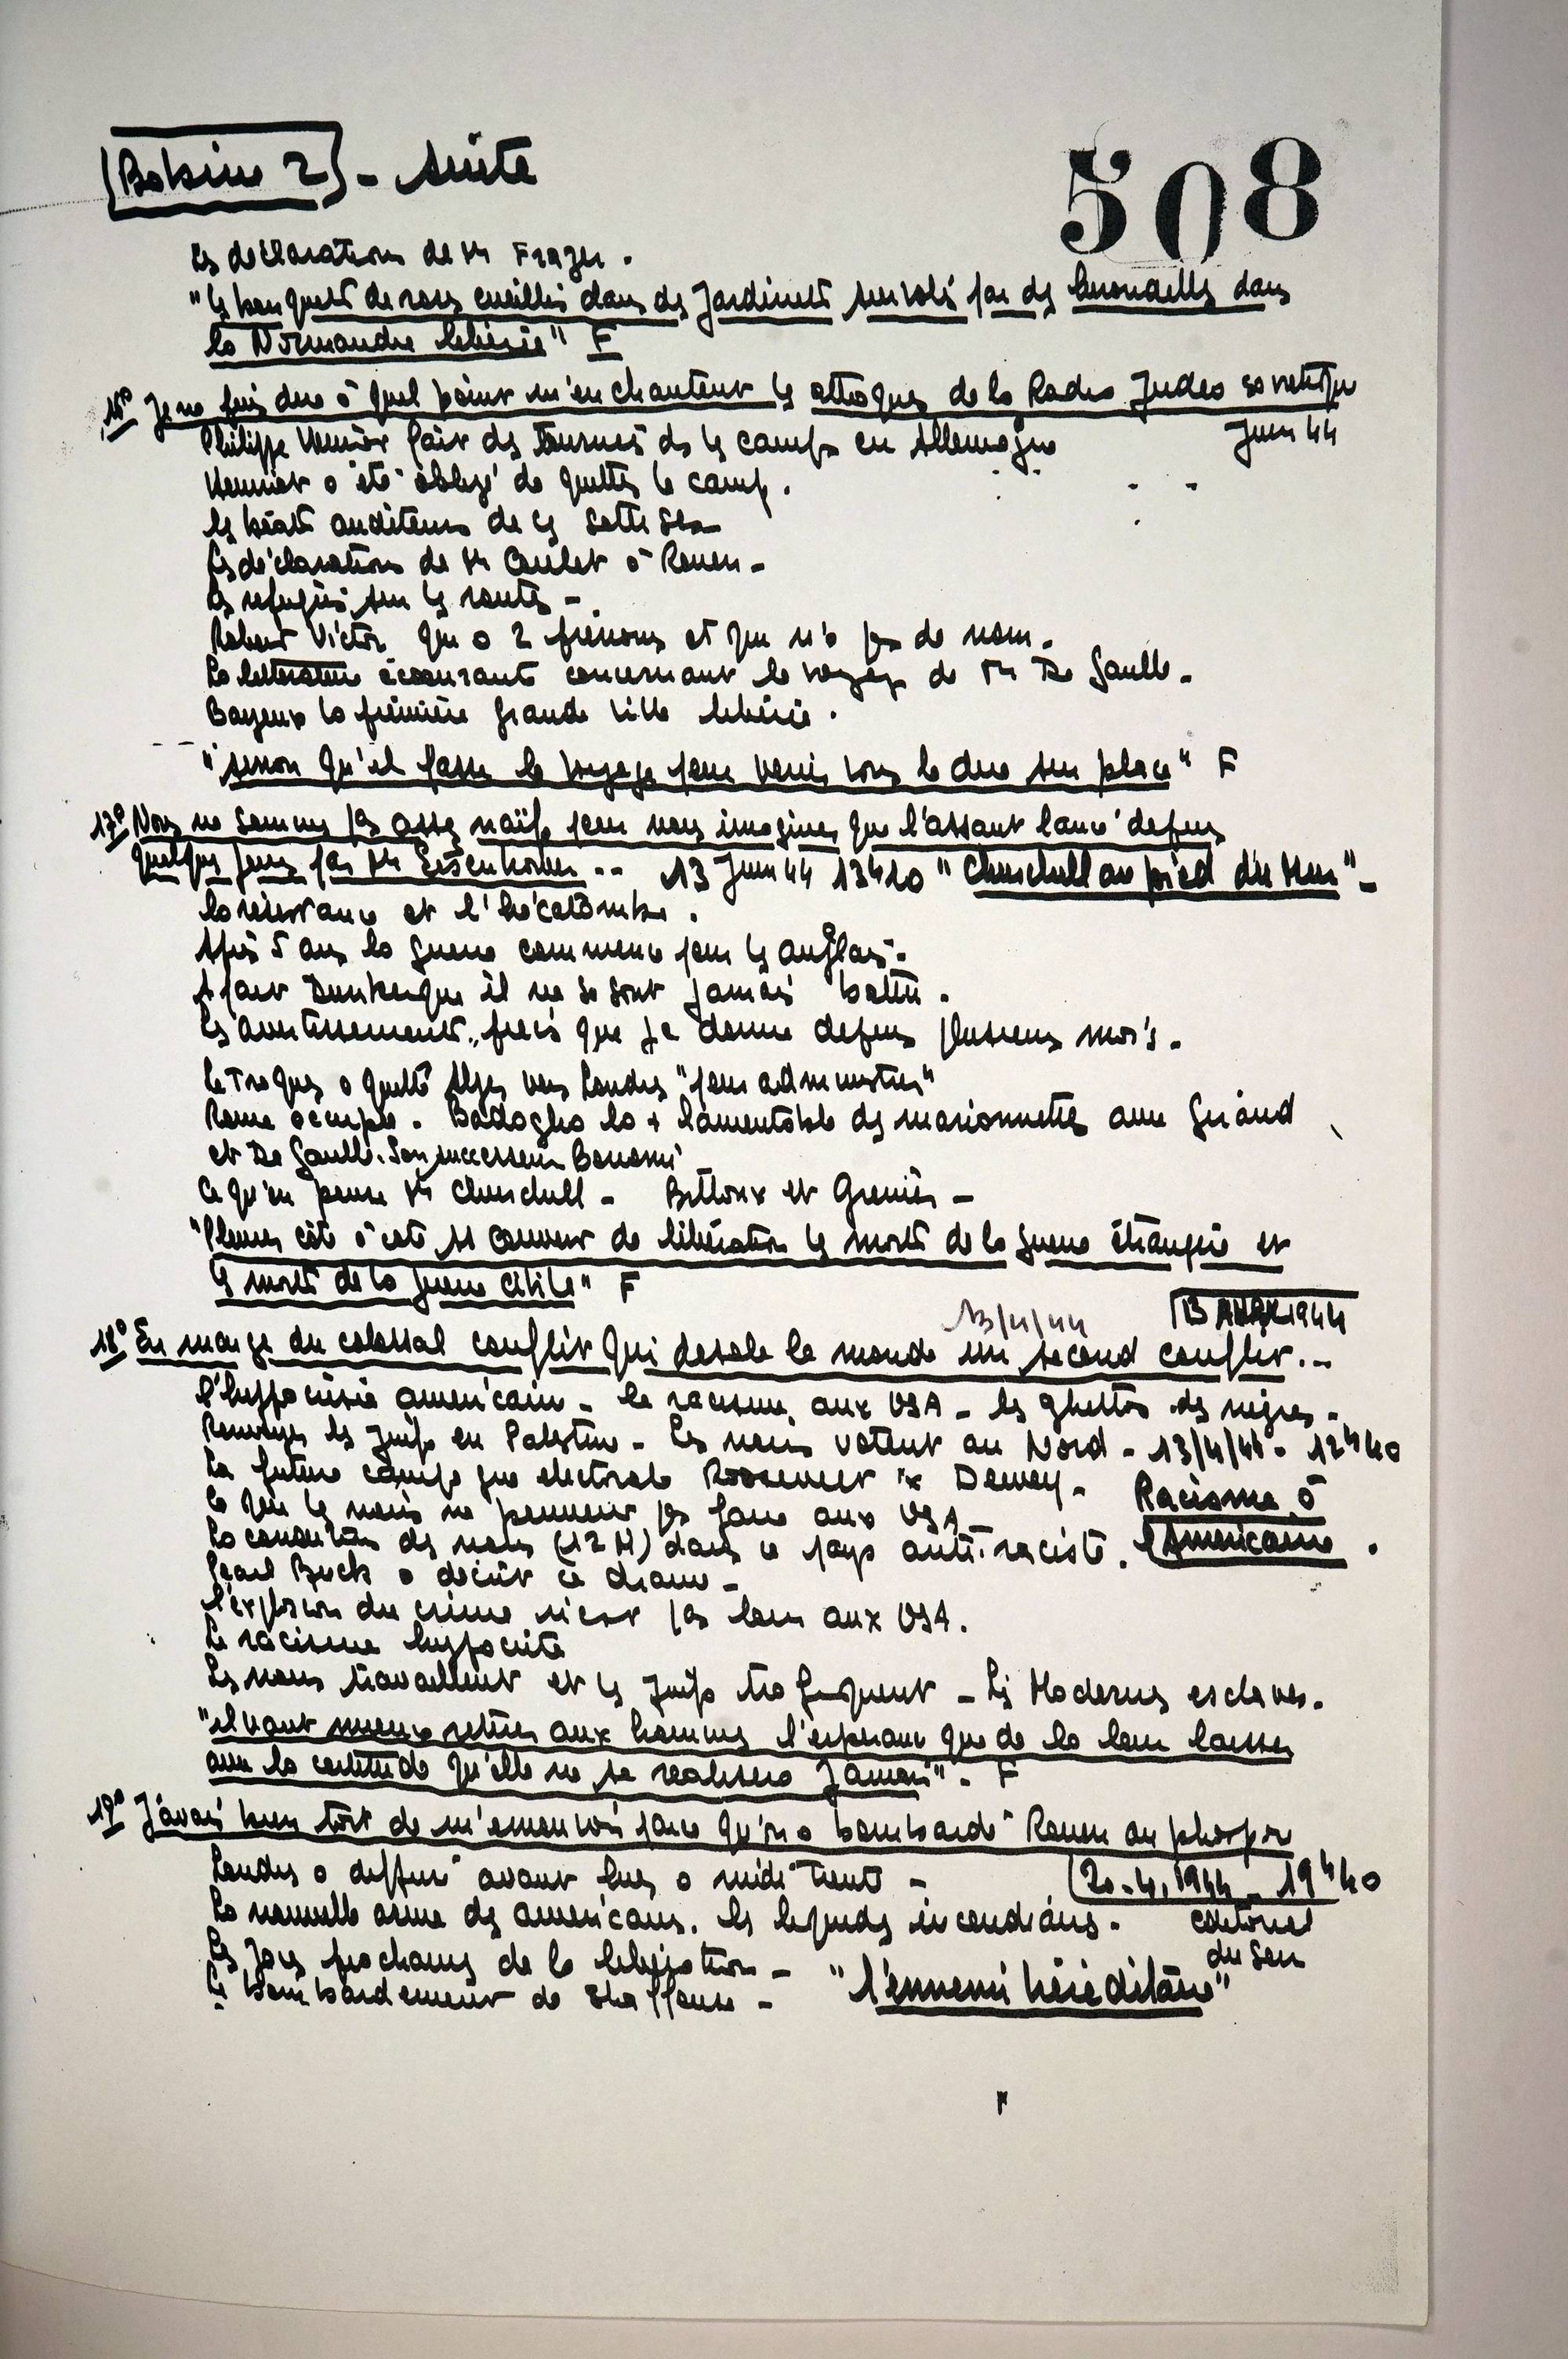 [Bobine 2] - suite
508
les déclarations de Mr Frazer.
"les bouquets de roses cueillis dans des Jardinets survolés par des hirondelles dans
la Normandie libérée" F
16° Je ne puis dire à quel point m'enchantent les attaques de la Radio Judéo soviétique
Juin 44
Philippe Henriot fait des tournées ds les camps en Allemagne
Henriot a été obligé de quitter le camp.
les béats auditeurs de ces sottises
les déclarations de Mr Coulet à Rouen -
les réfugiés sur les routes -
Robert Victor qui a 2 prénoms et qui n'a pas de nom.
La littérature écoeurante concernant le voyage de Mr De Gaulle.
Bayeux la première grande ville libérée.
"sinon qu'il fasse le voyage pour venir vous le dire sur place" F
17° Nous ne sommes pas assez naïfs pour nous imaginer que l'assaut lancé depuis
quelques jours par Mr Eisenhower... 13 Juin 44 13h20 "Churchill au pied du Mur" -
la résistance et l'hécatombe.
Après 5 ans la guerre commence pour les anglais.
A part Dunkerque il ne se sont jamais battu.
les avertissements précis que je donne depuis plusieurs mois.
Le Troquer a quitté Alger vers Londres "pour administrer"
Rome occupée. Badoglio la + lamentable des marionnettes avec Giraud
et De Gaulle. Son successeur Bonomi
Ce qu'en pense Mr Churchill - Billoux et Grenier -
"Pleurer côte à côte au couvent de libération les morts de la guerre étrangère et
les morts de la guerre civile" F
13/4/44 13 AVRIL 1944
18° En marge du colossal conflit qui désole le monde un second conflit...
l'hypocrisie américaine - le racisme aux USA - les ghettos des nègres -
Renvoyer les Juifs en Palestine - Les noirs votent au Nord - 13/4/44 - 12h40
La future campagne électorale Roosevelt x Dewey -
Racisme à
l'Américaine.
ce que les noirs ne peuvent pas faire aux USA
La condition des noirs (12 M) dans ce pays anti-raciste.
Pearl Buck a décrit ce drame -
l'explosion du crime n'est pas loin aux USA.
Le racisme hypocrite
Les noirs travaillent et les Juifs trafiquent - Les Modernes esclaves.
"il vaut mieux retirer aux hommes l'espérance que de la leur laisser
avec la certitude qu'elle ne se réalisera Jamais" - F
19° J'avais bien tort de m'émouvoir parce qu'on a bombardé Rouen au phosphore
Londres a diffusé avant hier à midi trente -
20-4-1944 - 19h40
La nouvelle arme des américains. les liquides incendiaires -
éditorial
du soir
Les Joies prochaines de la libération -
"l'ennemi héréditaire"
Le bombardement de Shaffouse -